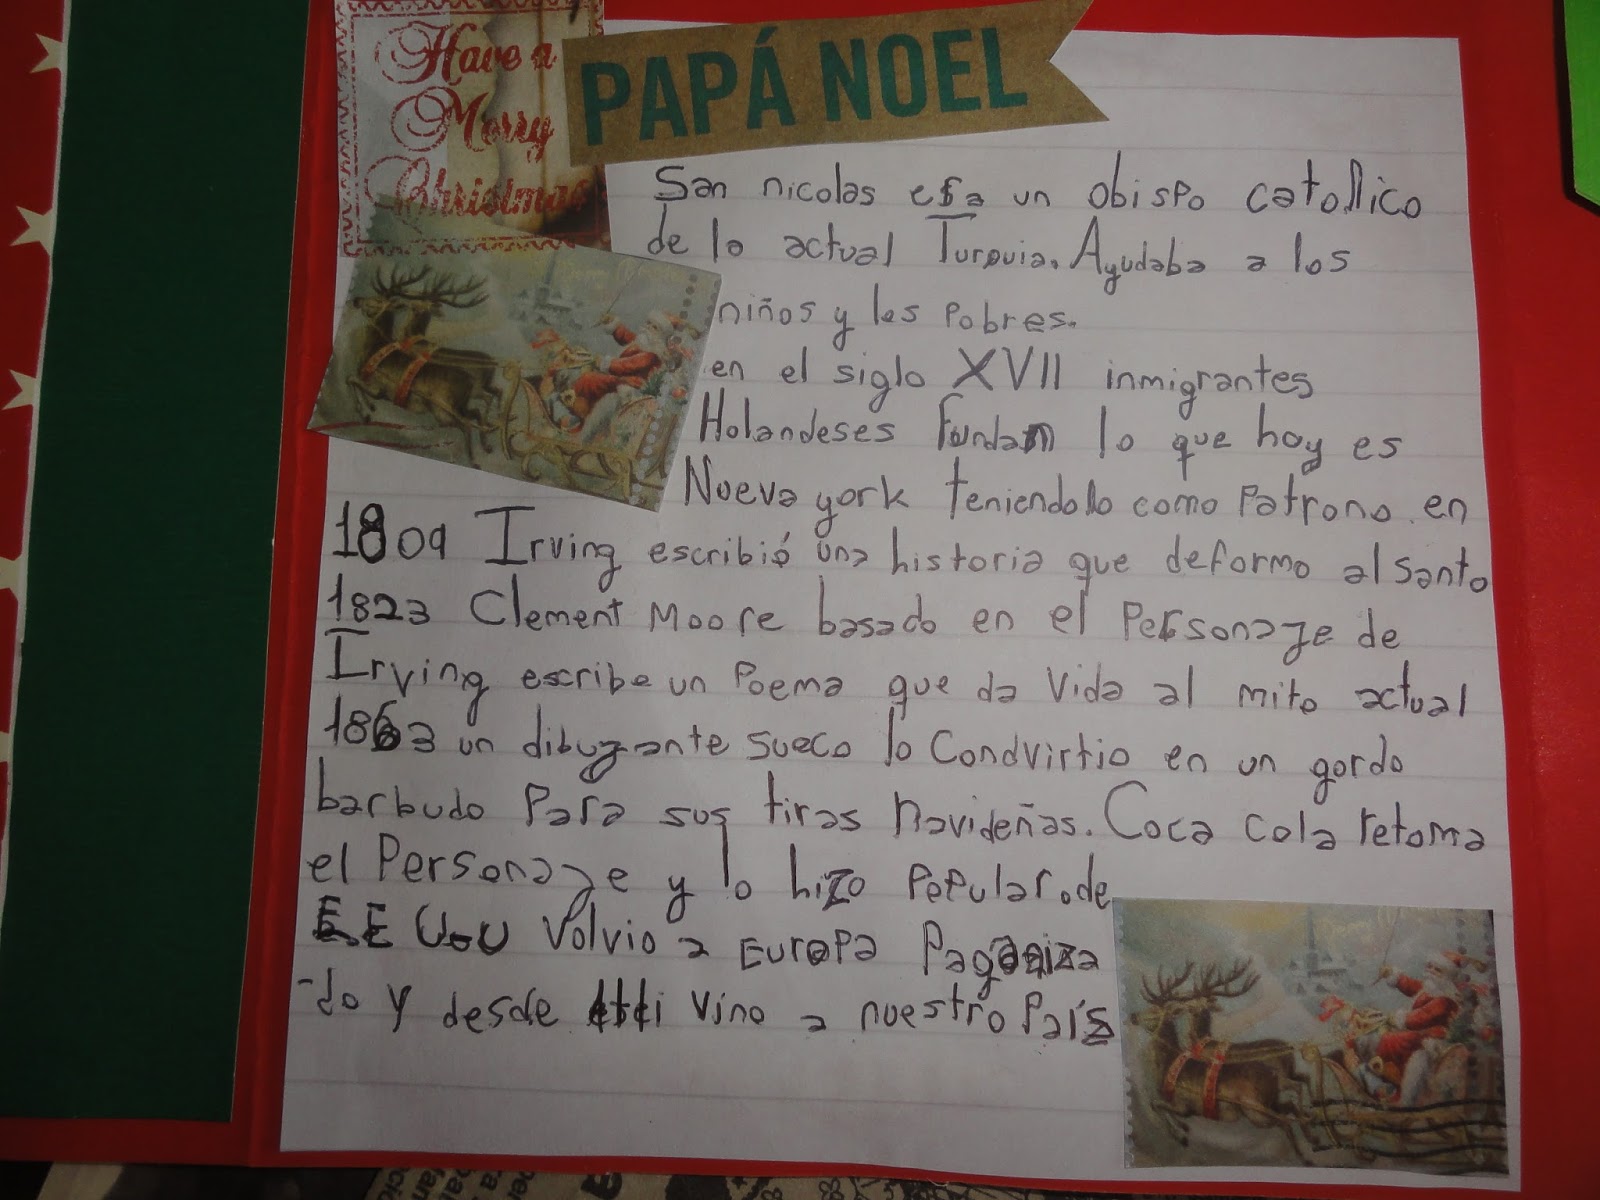 Have a
Merry
Christmas
PAPÁ NOEL
San nicolas era un obispo catollico
de lo actual Turquia. Ayudaba a los
niños y los pobres.
en el siglo XVII inmigrantes
Holandeses Fundan lo que hoy es
Nueva york teniendolo como Patrono. en
1809 Irving escribió una historia que deformo al santo
1823 Clement Moore basado en el Personaje de
Irving escribe un Poema que da vida al mito actual
1863 un dibujante sueco lo Condvirtio en un gordo
barbudo Para sus tiras Navideñas. Coca cola retoma
el Personaje y lo hizo Popular. de
EE U.U volvio a Europa Paganiza
-do y desde vino a nuestro País